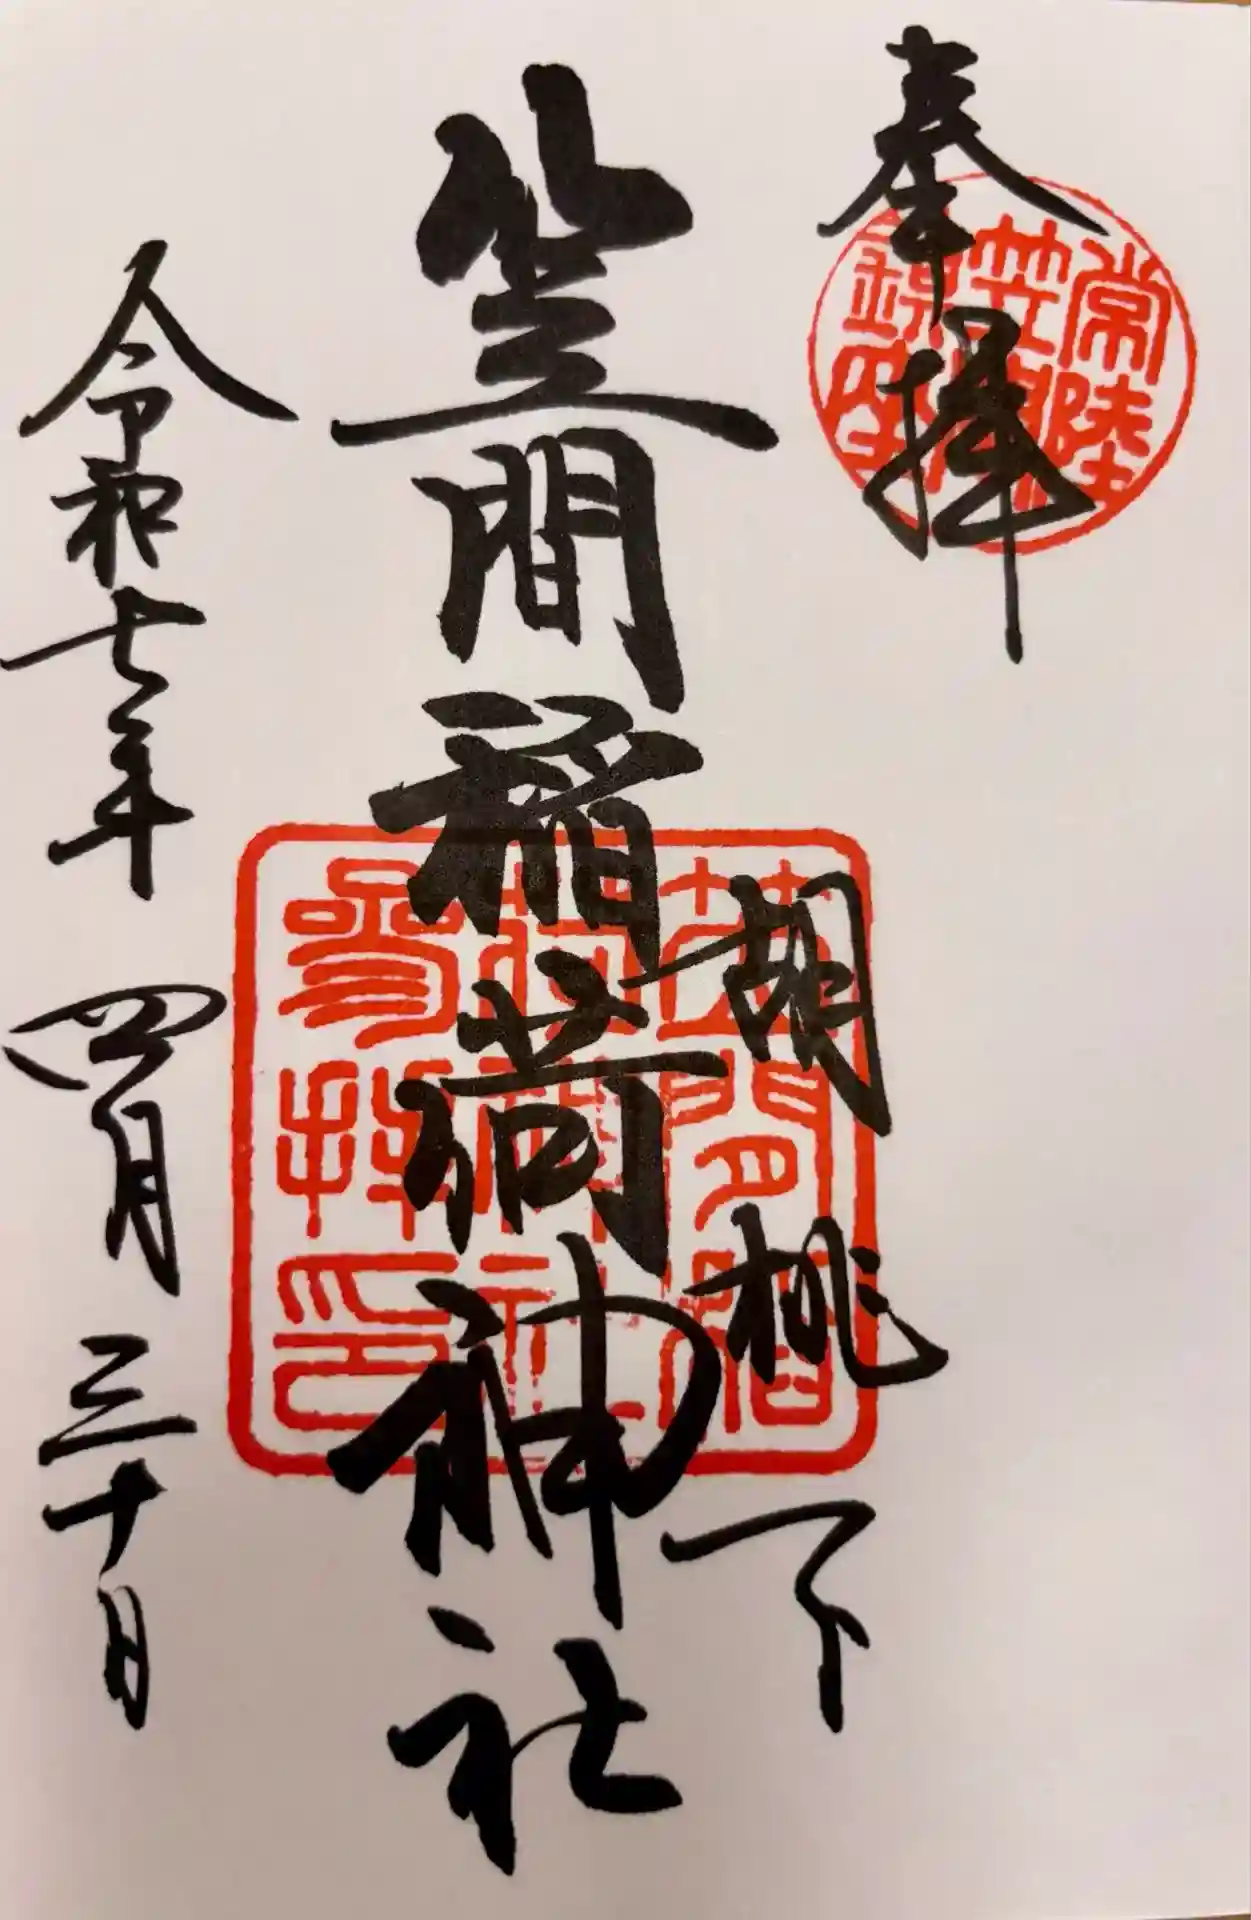 奉拝
常陸
笠間
錦座
胡桃下
笠間稲荷神社
笠間稲
荷神社
参拝印
令和七年 四月 三十日